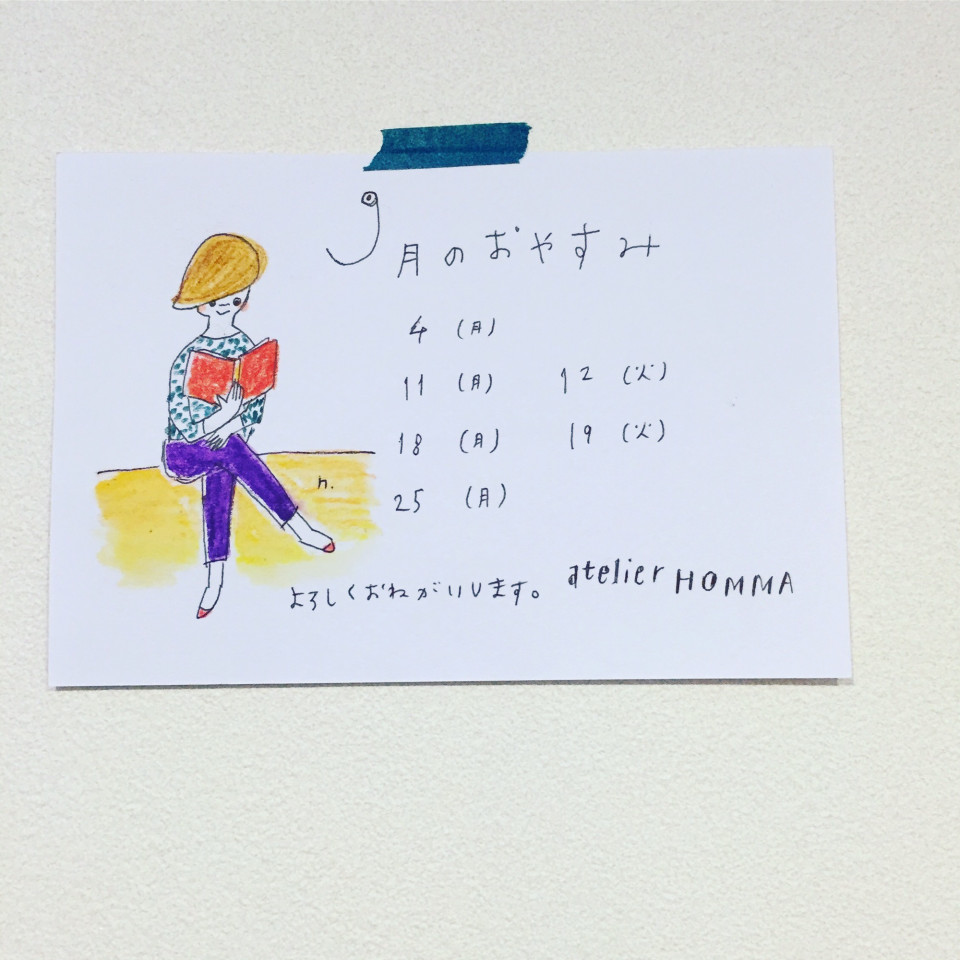 9月のおやすみ
4 (月)
11 (月) 12 (火)
18 (月) 19 (火)
25 (月)
h.
よろしくおねがいします。 atelier HOMMA